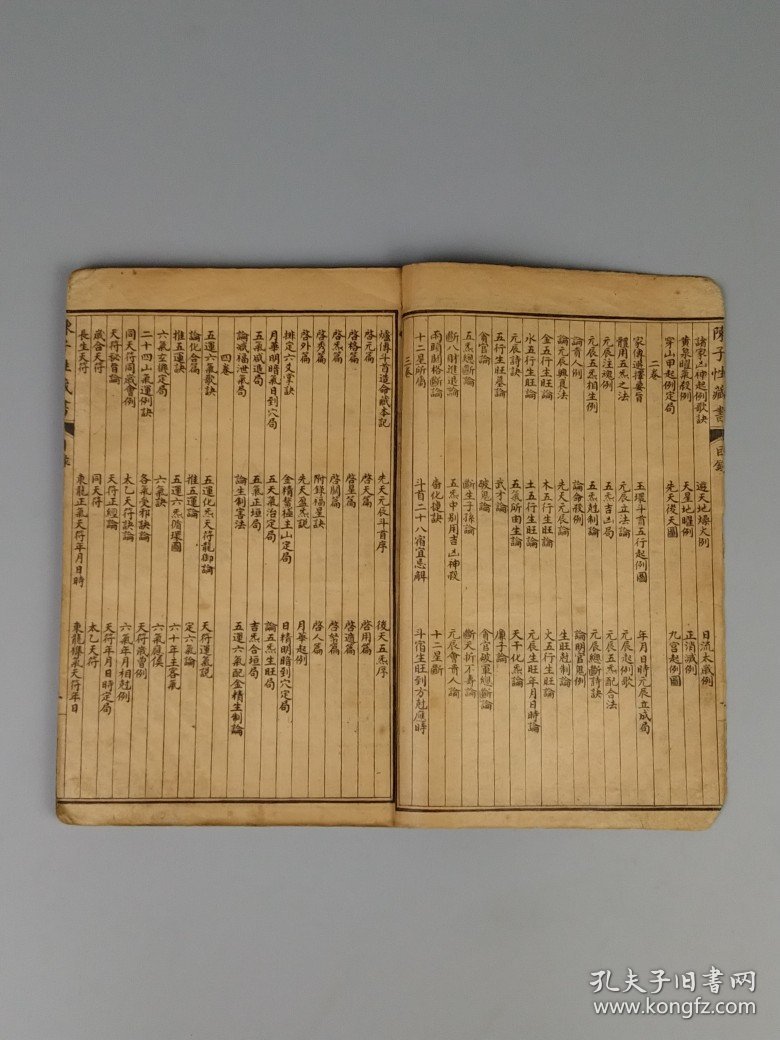 陳子性藏書 目錄
諸家凶神起例歌訣 遊天地燥火例 日流太歲例
黃泉曜氣殺例 天星地曜例 正消滅例
穿山甲起例定局 先天後天圖 九宮起例圖
二卷
家傳選擇要旨 玉環斗首五行起例圖 年月日時元辰立成局
體用五炁之法 元辰立法論 元辰起例歌
元辰注魂例 五炁吉凶局 元辰五炁配合法
元辰五炁相生例 五炁尅制論 元辰總斷詩訣
論貴人例 論命殺例 論明官鬼例
論元辰興衰法 先天元辰論 生旺尅制論
金五行生旺論 木五行生旺論 火五行生旺論
水五行生旺論 土五行生旺論 元辰生旺年月日時論
元辰詩訣 五氣所由生論 天干化炁論
五行生旺墓論 武才論 廉子論
貪官論 破鬼論 貪官破鬼總斷論
五炁總斷論 斷生子孫論 斷夭折不壽論
斷八財進退論 五炁中剋用吉凶神殺 元辰會貴人論
兩關關格斷論 喬化捷訣 十二星斷
十二星所屬 斗首二十八宿宜忌解 斗宿生旺到方尅應時
三卷
爐傳斗首造命藏本記 先天元辰斗首序 後天五炁序
啓元篇 啓天篇 啓用篇
啓格篇 啓星篇 啓適篇
啓秀篇 啓關篇 啓幫篇
啓外篇 啓炁篇 啓人篇
排定六爻掌訣 附錄福星訣 月華起例
月華明暗氣日到穴局 先天盈炁說 日精明暗到穴定局
五氣咸造局 金精鰲極主山定局 論五炁生旺局
論氣福泄氣局 五天氣治定局 吉炁合垣局
五氣正垣局 五運六氣配金精生制論
四卷 論生制害法
五運六氣歌訣 五運化炁天符龍御論 天符運氣說
論化合篇 推五運論 定六氣論
推五運訣 五運六炁循環圖 六十年主客氣
六氣玄機定局 六氣訣 六氣應候
二十四山氣運例訣 各氣受相訣論 六氣年月相尅例
同天符同歲會例 太乙天符訣論 天符歲會例
天符秘旨論 天符正經論 天符年月日時定局
歲合天符 同天符 太乙天符
長生天符 東龍正氣天符年月日時 東龍穆氣天符年日
陳子性藏書 目錄
孔夫子旧书网
www.kongfz.com